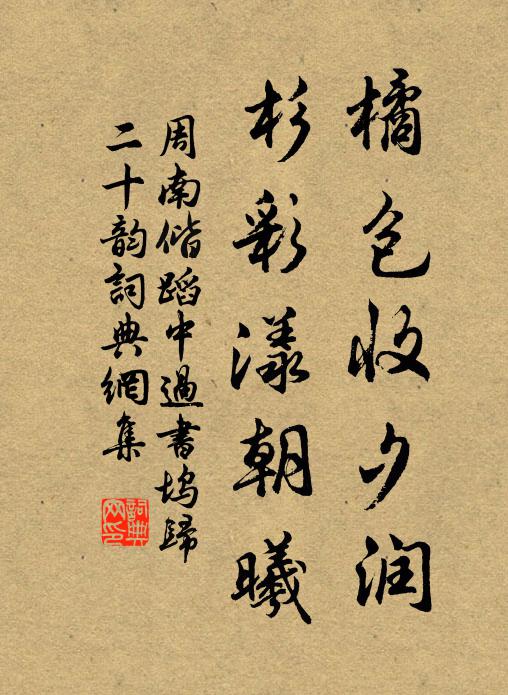 橘包收夕润
杉彩漾朝曦
周南偕蹈中過書塢歸
二十韵詞典網集
詞典網印